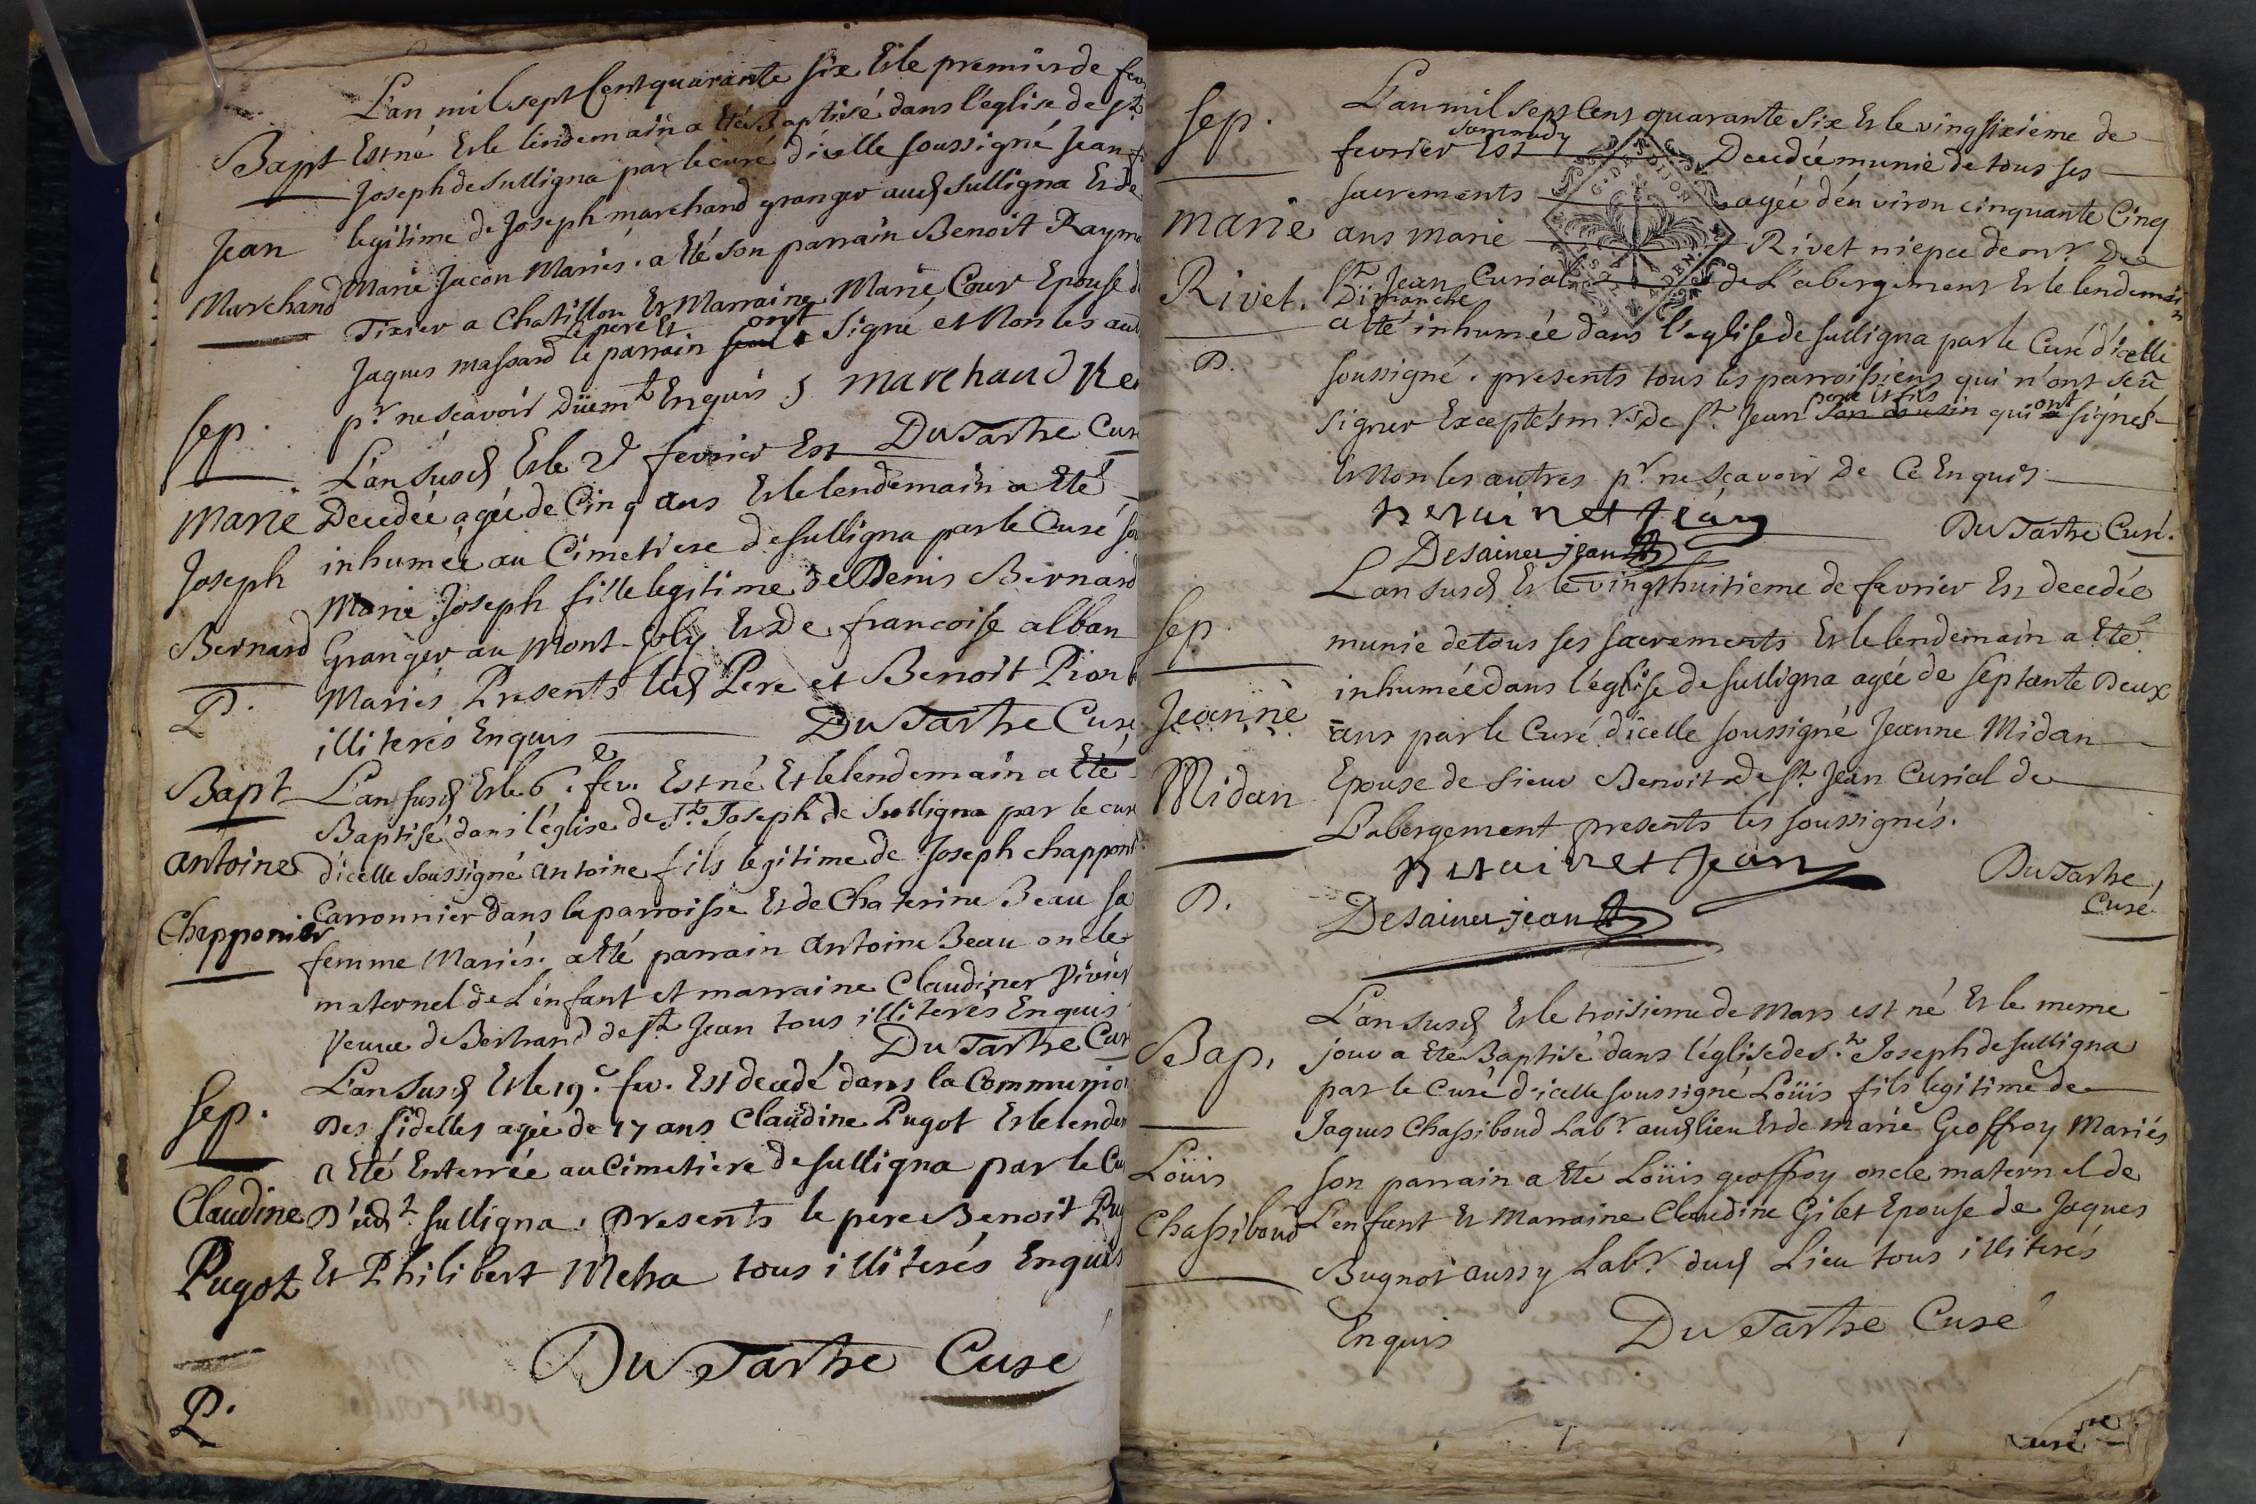 L'an mil sept Cent quarante six Et le premier de fev
Bapt Est né Et le lendemain a Eté Baptisé dans l'eglise de St
Joseph de Sulligna par le curé d'icelle soussigné Jean f
Jean legitime de Joseph marchand granger aud Sulligna Et De
Marchand Marie Jacon Mariés. a Eté son parrain Benoit Raymo
Tixier a Chatillon Et Marraine Marie Cour Epouse d
le pere Et ont
Jaques massard le parrain Signé et Non les aut
pr ne sçavoir Düemt Enquis marchand Re
Du Tartre Curé
Sep. L'an susd Et le 2d fevrier Est
Marie Decedée agée de Cinq ans Et le lendemain a Eté
Joseph inhumée au Cimetiere de Sulligna par le Curé so
Marie Joseph fille legitime de Denis Bernard
Bernard Granger au Mont-Joly Et De francoise alban
P. Mariés Presents led Pere et Benoit Pion
illiterés Enquis Du Tartre Curé
Bapt L'an susd Et le 6e. fev. Est né Et le lendemain a Eté
Baptisé dans l'église de St Joseph de Sulligna par le curé
antoine d'icelle soussigné antoine fils legitime de Joseph chapponi
Chapponier Carronnier dans la parroisse Et de Chaterine Beau sa
femme Mariés. a Eté parrain antoine Beau oncle
maternel de L'enfant et marraine Claudine Vivier
Veuve de Bertrand de St Jean tous illiterés Enquis
Du Tartre Curé
Sep. L'an susd Et le 19e. fev. Est decedé dans la Communion
Des fidelles agée de 17 ans Claudine Pugot Et le lendem
a Eté Enterrée au Cimetiere de Sulligna par le Cu
Claudine D'ud Sulligna. Presents le pere Benoit Pug
Pugot Et Philibert Meha tous illiterés Enquis
Du Tartre Curé
P.
Sep. L'an mil sept Cent quarante Six Et le vingsixieme de
sammedy
fevrier Est Decedée munie de tous ses
G. DE DIJON
sacrements agée d'environ cinquante Cinq
Marie ans Marie Rivet niepce de mr. De
Rivet. St. Jean Curial de L'abergement Et le lendemain
Dimanche
P. a Eté inhumée dans l'eglise de Sulligna par le Curé d'icelle
soussigné. presents tous les parroissiens qui n'ont sçû
pere Et fils ont
Signer Exceptés mrs de St. Jean son cousin qui a signés
Et Non les autres pr. ne sçavoir De Ce Enquis
Desainct jean Du Tartre Curé.
Sep. L'an susd Et le vingthuitieme de fevrier Est decedée
munie de tous ses sacrements Et le lendemain a Eté
inhumée dans l'église de Sulligna agée de septante Deux
Jeanne ans par le Curé d'icelle soussigné Jeanne Midan
Midan Epouse de Sieur Benoit de St. Jean Curial de
L'abergement presents les soussignés.
P. Desainct jean Du Tartre
Curé
L'an susd Et le troisieme de Mars est né Et le meme
Bap. jour a Eté Baptisé dans l'église de St. Joseph de Sulligna
par le Curé d'icelle soussigné Loüis fils legitime de
Jaques Chassiboud Labr. aud lieu Et de marie Geoffroy Mariés
Loüis son parrain a Eté Loüis geoffroy oncle maternel de
Chassiboud L'enfant Et Marraine Claudine Gilet Epouse de Jaques
Bugnot aussy Labr. dud Lieu tous illiterés
Enquis Du Tartre Curé